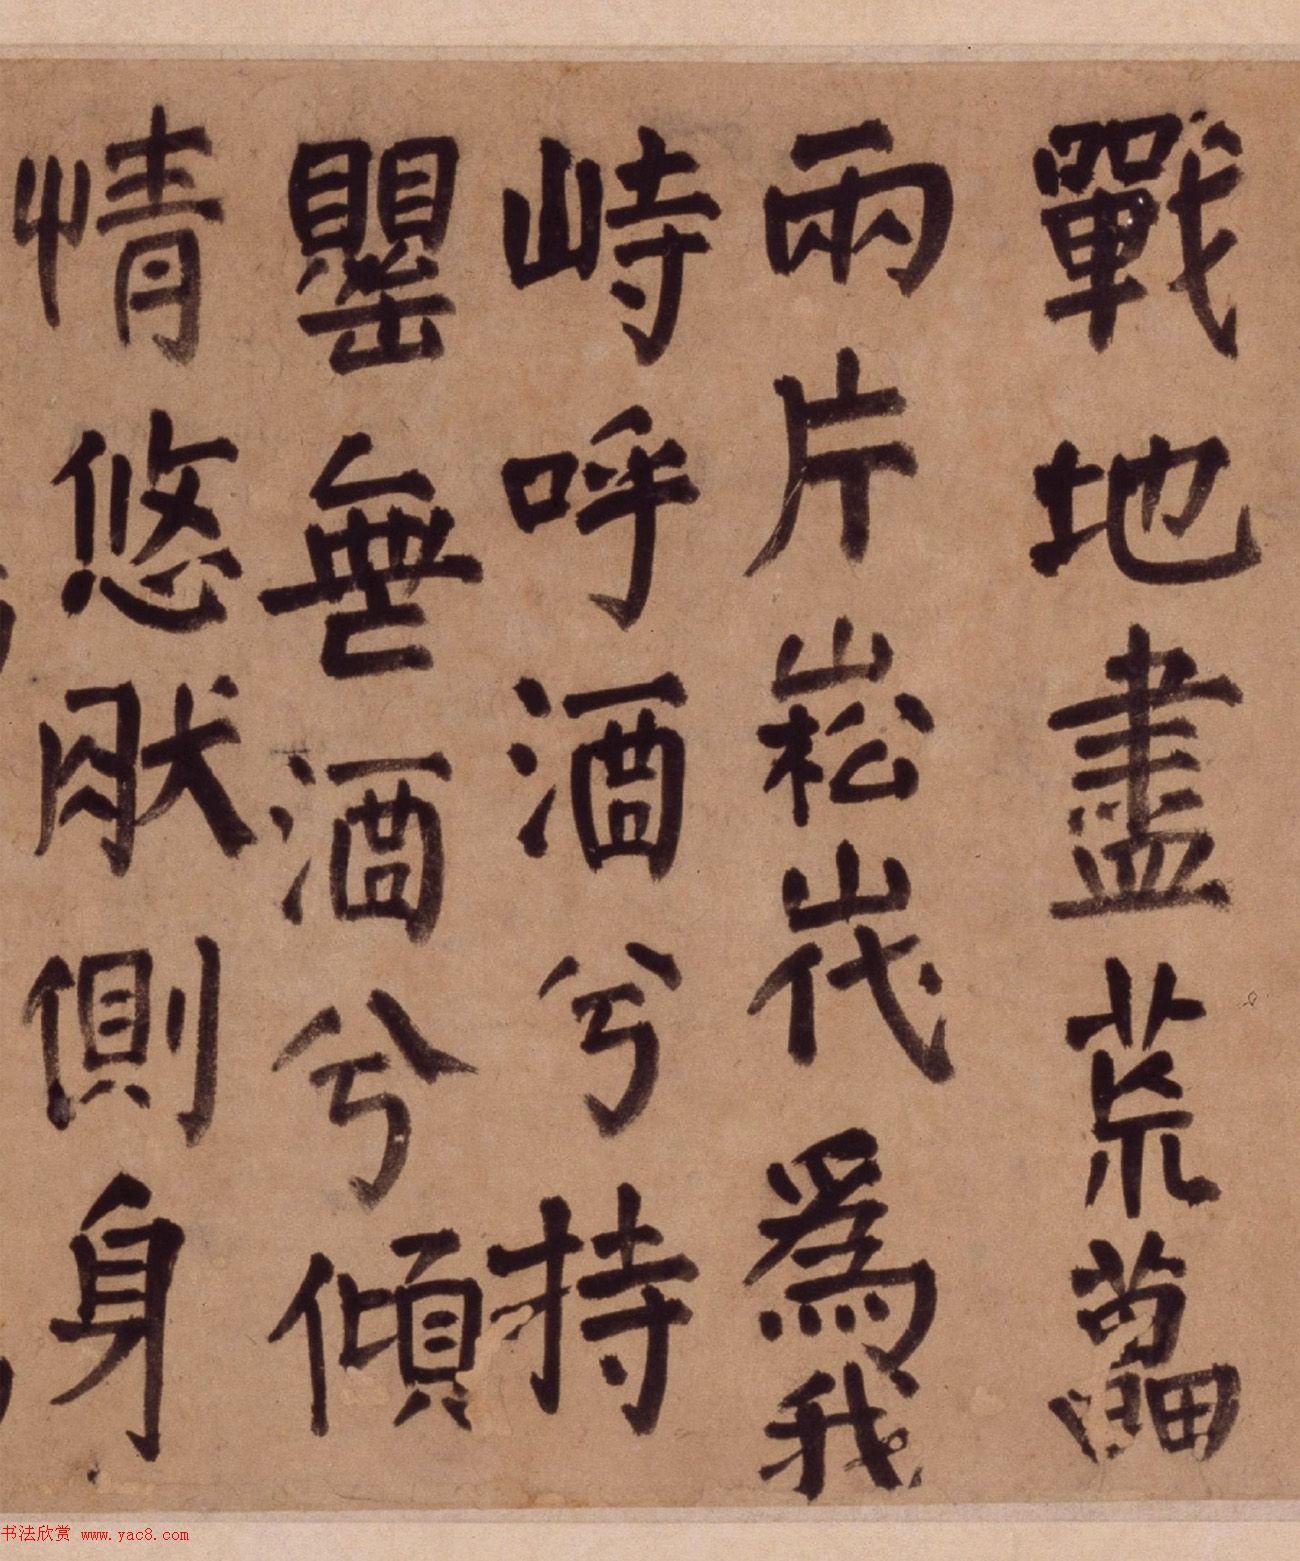 戰地盡荒藟
兩片崧岱為我
峙呼酒兮持
罌無酒兮傾
情悠肰側身
书法欣赏 www.yac8.com